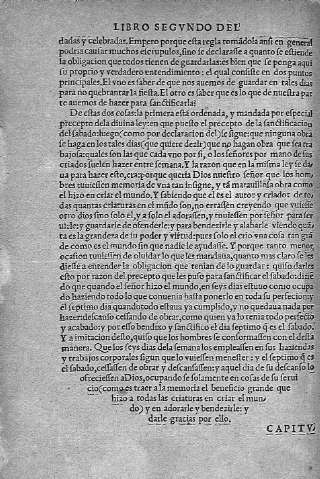 LIBRO SEGVNDO DEL
dadas y celebradas. Empero porque esta regla tomada assi en general
podria causar muchos escrupulos, sino se declarasse a quanto se estiende
la obligacion que todos tienen de guardarlas: es bien que se ponga aqui
su proprio y verdadero entendimiento; el qual consiste en dos puntos
principales. El vno es saber de que nos auemos de guardar en tales dias
para no quebrantar la fiesta. El otro es saber que es lo que de nuestra par
te auemos de hazer para sanctificarlas
De estas dos cosas: la primera está ordenada, y mandada por especial
precepto dela diuina ley: en que puesto el precepto de la sanctificacion
del sabado: luego (como por declaracion del) se sigue: que ninguna obra
se haga en los tales dias (que quiere dezir) que no hagan obra que sea tra
bajosa: quales son las que cada vno por si, o los señores por mano de sus
criados suelen hazer entre semana. Y la razon que en la misma ley se da
ua para hazer esto, era; porque queria Dios nuestro señor que los hom,
bres tuuiessen memoria de vna tan insigne, y tā marauillosa obra como
el hizo en criar el mundo. Y sabiendo que el es el autor y criador de to,
das quantas criaturas en el mundo son, no errassen creyendo que vuiesse
otro dios sino solo el, y a solo el adorassen, y tuuiessen por señor para ser
uirle: y guardarse de ofenderle: y para bendezirle y alabarle viendo quā
ta es la grandeza de su poder y virtud: pues solo el crio vna cosa tan grā
de como es el mundo sin que nadie le ayudasse. Y porque tanto menor
ocasion tuuiessen de oluidar lo que les mandaua, quanto mas claro se les
diesse a entender la obligacion que tenian de lo guardar: quiso darles
esto por razon del precepto que les puso para sanctificar el sabado: diziē
do que quando el señor hizo el mundo, en seys dias estuuo como ocupa
do haziendo todo lo que conuenia hasta ponerlo en toda su perfeciō; y
el septimo dia quando todo estaua ya cumplido, y no quedaua nada por
hazer: descanso cessando de obrar, como quien ya lo tenia todo perfecto
y acabado: y por esso bendixo y sanctifico el dia septimo q̄ es el sabado.
Y a imitacion desto, quiso que los hombres se conformassen con el desta
manera. Que los seys dias dela semana los empleassen en sus haziendas
y trabajos corporales segun que lo vuiessen menester: y el septimo q̄ es
el sabado, cessassen de obrar y descansassen: y aquel dia de su descanso lo
ofreciessen a Dios, ocupando se solamente en cosas de su serui
cio (como es traer a la memoria el beneficio grande que
hizo a todas las criaturas en criar el mun
do) y en adorarle y bendezirle: y
darle gracias por ello.
CAPITV,